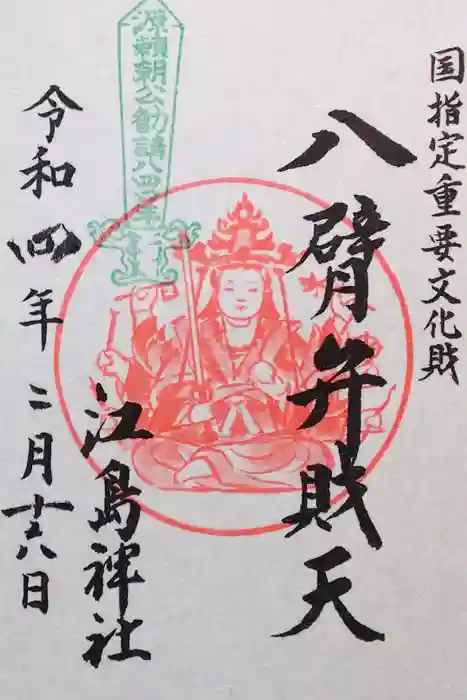 国指定重要文化財
八臂弁財天
源頼朝公勧請八四〇年
江島神社
令和四年二月十六日